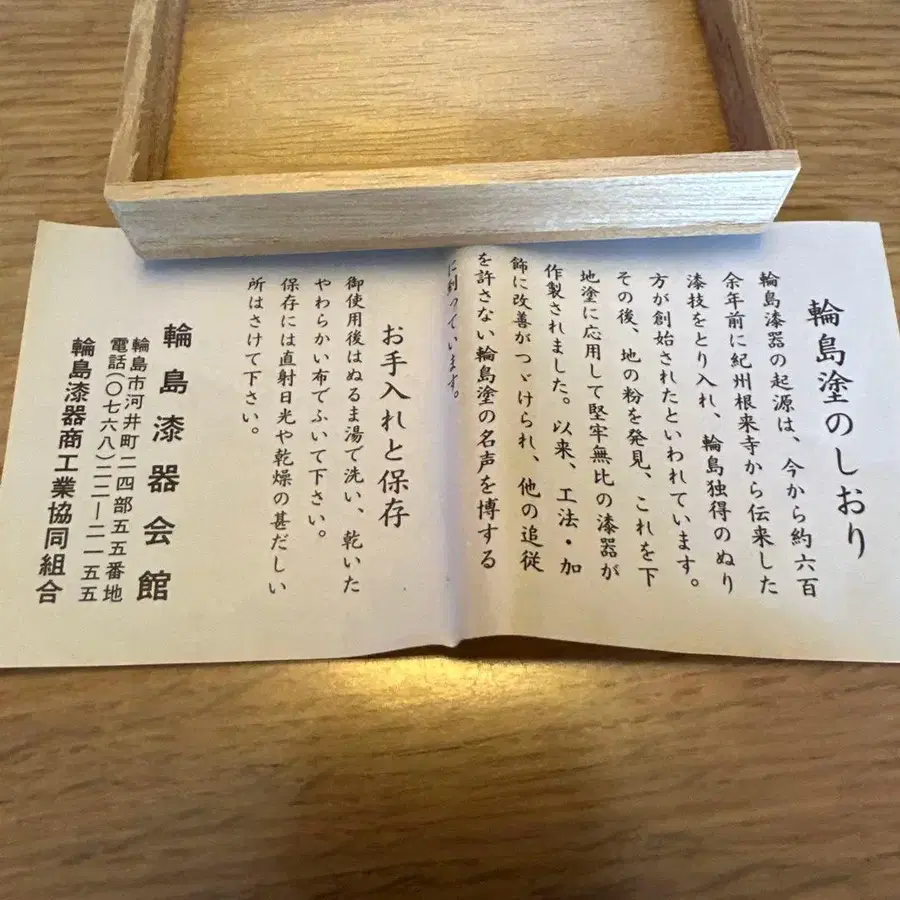 輪島塗のしおり
輪島漆器の起源は、今から約六百
余年前に紀州根来寺から伝来した
漆技をとり入れ、輪島独得のぬり
方が創始されたといわれています。
その後、地の粉を発見、これを下
地塗に応用して堅牢無比の漆器が
作製されました。以来、工法・加
飾に改善がつゞけられ、他の追従
を許さない輪島塗の名声を博する
に到っています。
お手入れと保存
御使用後はぬるま湯で洗い、乾いた
やわらかい布でふいて下さい。
保存には直射日光や乾燥の甚だしい
所はさけて下さい。
輪島漆器会館
輪島市河井町二四部五五番地
電話(〇七六八)二二―二一五五
輪島漆器商工業協同組合